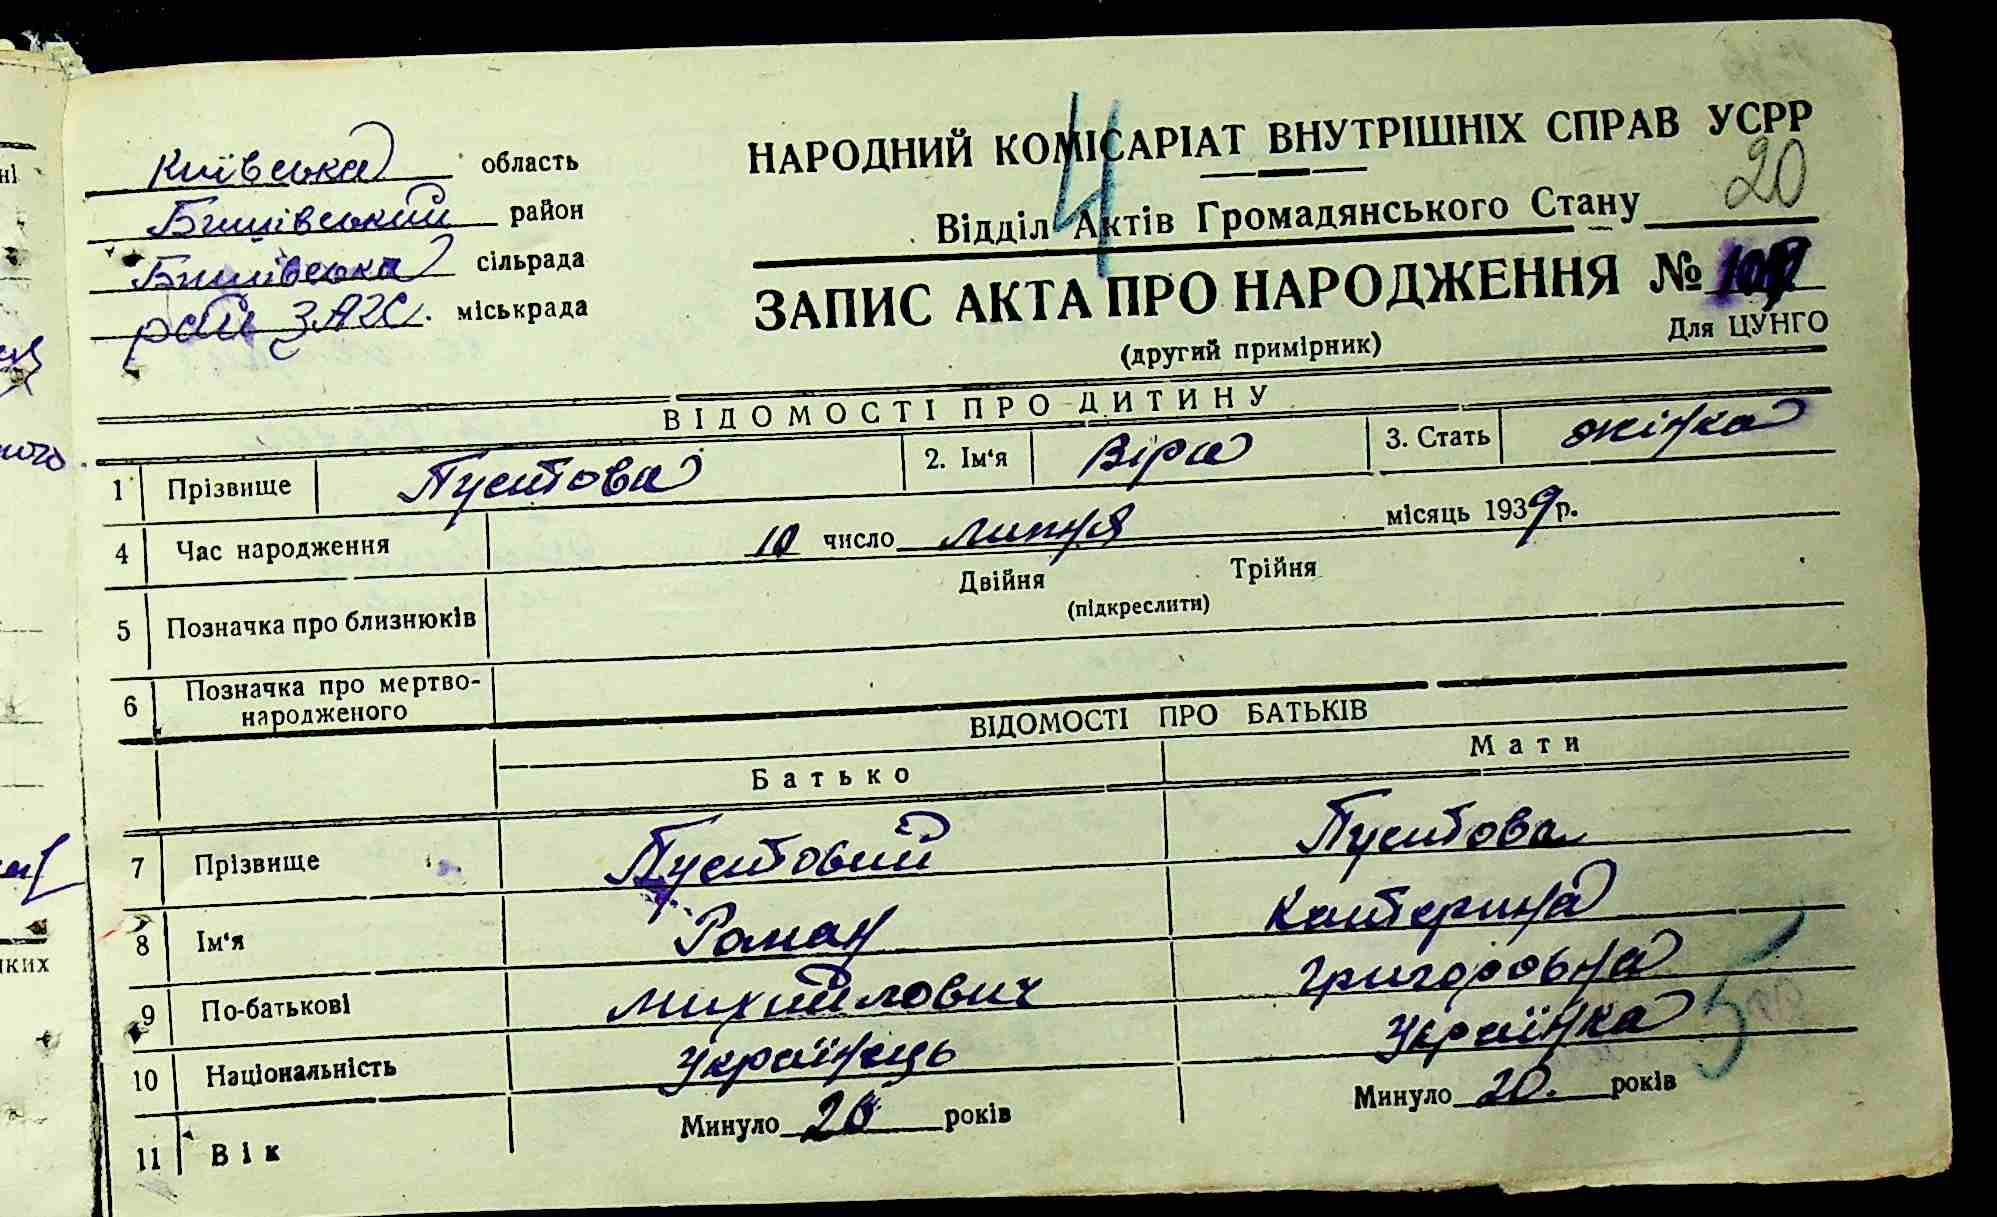 Київська область
Бишівський район
Бишівська сільрада
рай ЗАГС. міськрада
НАРОДНИЙ КОМІСАРІАТ ВНУТРІШНІХ СПРАВ УСРР
4
20
Відділ Актів Громадянського Стану
ЗАПИС АКТА ПРО НАРОДЖЕННЯ №
(другий примірник)
Для ЦУНГО
ВІДОМОСТІ ПРО ДИТИНУ
1 Прізвище Пустова 2. Ім'я Віра 3. Стать жінка
4 Час народження 10 число липня місяць 1939 р.
5 Позначка про близнюків Двійня Трійня
(підкреслити)
6 Позначка про мертво-
народженого
ВІДОМОСТІ ПРО БАТЬКІВ
Батько Мати
7 Прізвище Пустовий Пустова
8 Ім'я Роман Катерина
9 По-батькові Михайлович Григоровна
10 Національність Українець Українка
5
11 Вік Минуло 26 років Минуло 20. років
ких